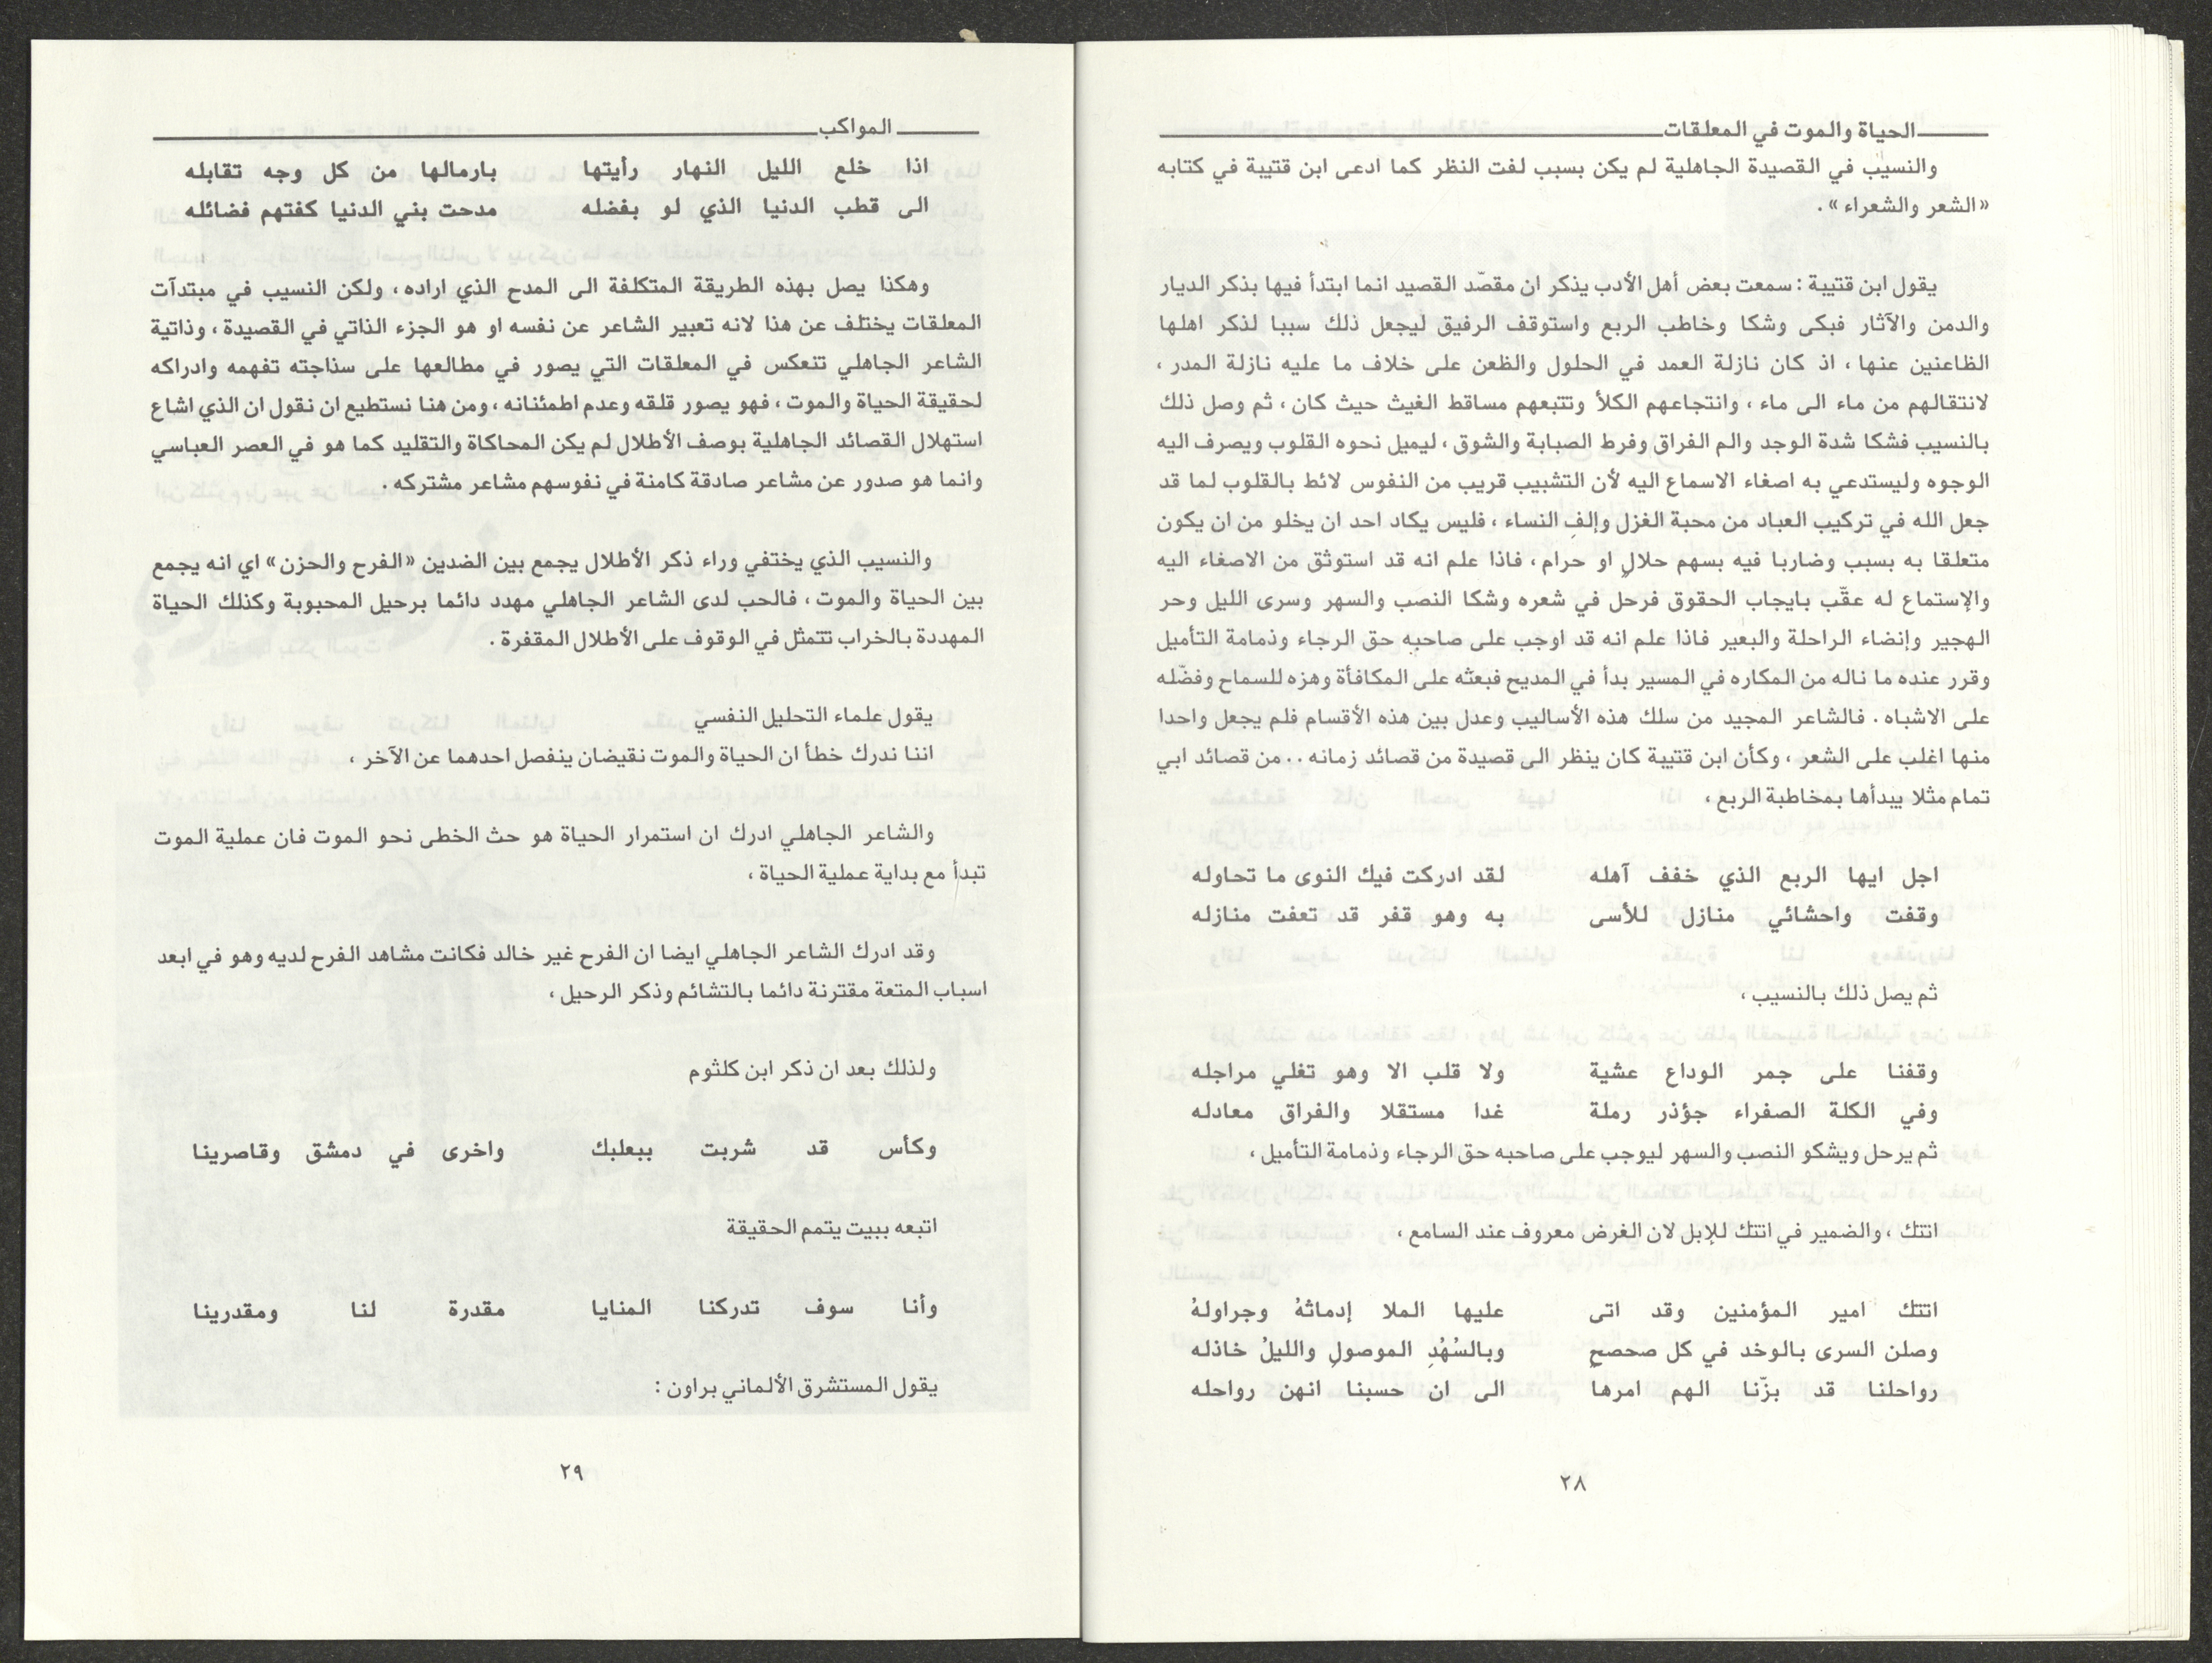 الحياة والموت في المعلقات
والنسيب في القصيدة الجاهلية لم يكن بسبب لفت النظر كما ادعى ابن قتيبة في كتابه
«الشعر والشعراء» .
يقول ابن قتيبة : سمعت بعض أهل الأدب يذكر ان مقصّد القصيد انما ابتدأ فيها بذكر الديار
والدمن والآثار فبكى وشكا وخاطب الربع واستوقف الرفيق ليجعل ذلك سببا لذكر اهلها
الظاعنين عنها ، اذ كان نازلة العمد في الحلول والظعن على خلاف ما عليه نازلة المدر ،
لانتقالهم من ماء الى ماء ، وانتجاعهم الكلأ وتتبعهم مساقط الغيث حيث كان ، ثم وصل ذلك
بالنسيب فشكا شدة الوجد والم الفراق وفرط الصبابة والشوق ، ليميل نحوه القلوب ويصرف اليه
الوجوه وليستدعي به اصغاء الاسماع اليه لأن التشبيب قريب من النفوس لائط بالقلوب لما قد
جعل الله في تركيب العباد من محبة الغزل وإلفِ النساء ، فليس يكاد احد ان يخلو من ان يكون
متعلقا به بسبب وضاربا فيه بسهم حلالٍ او حرام ، فاذا علم انه قد استوثق من الاصغاء اليه
والإستماع له عقّب بايجاب الحقوق فرحل في شعره وشكا النصب والسهر وسرى الليل وحر
الهجير وإنضاء الراحلة والبعير فاذا علم انه قد اوجب على صاحبه حق الرجاء وذمامة التأميل
وقرر عنده ما ناله من المكاره في المسير بدأ في المديح فبعثه على المكافأة وهزه للسماح وفضّله
على الاشباه . فالشاعر المجيد من سلك هذه الأساليب وعدل بين هذه الأقسام فلم يجعل واحدا
منها اغلب على الشعر ، وكأن ابن قتيبة كان ينظر الى قصيدة من قصائد زمانه .. من قصائد ابي
تمام مثلا يبدأها بمخاطبة الربع ،
اجل ايها الربع الذي خفف آهله لقد ادركت فيك النوى ما تحاوله
وقفت واحشائي منازل للأسى به وهو قفر قد تعفت منازله
ثم يصل ذلك بالنسيب ،
وقفنا على جمر الوداع عشية ولا قلب الا وهو تغلي مراجله
وفي الكلة الصفراء جؤذر رملة غدا مستقلا والفراق معادله
ثم يرحل ويشكو النصب والسهر ليوجب على صاحبه حق الرجاء وذمامة التأميل ،
اتتك ، والضمير في اتتك للإبل لان الغرض معروف عند السامع ،
اتتك امير المؤمنين وقد اتى عليها الملا إدماثهُ وجراولهُ
وصلن السرى بالوخد في كل صحصحٍ وبالسُهُدِ الموصولِ والليلُ خاذله
رواحلنا قد بزّنا الهم امرها الى ان حسبنا انهن رواحله
٢٨
المواكب
اذا خلع الليل النهار رأيتها بارمالها من كل وجه تقابله
الى قطب الدنيا الذي لو بفضله مدحت بني الدنيا كفتهم فضائله
وهكذا يصل بهذه الطريقة المتكلفة الى المدح الذي اراده ، ولكن النسيب في مبتدآت
المعلقات يختلف عن هذا لانه تعبير الشاعر عن نفسه او هو الجزء الذاتي في القصيدة ، وذاتية
الشاعر الجاهلي تنعكس في المعلقات التي يصور في مطالعها على سذاجته تفهمه وادراكه
لحقيقة الحياة والموت ، فهو يصور قلقه وعدم اطمئنانه ، ومن هنا نستطيع ان نقول ان الذي اشاع
استهلال القصائد الجاهلية بوصف الأطلال لم يكن المحاكاة والتقليد كما هو في العصر العباسي
وانما هو صدور عن مشاعر صادقة كامنة في نفوسهم مشاعر مشتركه .
والنسيب الذي يختفي وراء ذكر الأطلال يجمع بين الضدين «الفرح والحزن» اي انه يجمع
بين الحياة والموت ، فالحب لدى الشاعر الجاهلي مهدد دائما برحيل المحبوبة وكذلك الحياة
المهددة بالخراب تتمثل في الوقوف على الأطلال المقفرة .
يقول علماء التحليل النفسي
اننا ندرك خطأ ان الحياة والموت نقيضان ينفصل احدهما عن الآخر ،
والشاعر الجاهلي ادرك ان استمرار الحياة هو حث الخطى نحو الموت فان عملية الموت
تبدأ مع بداية عملية الحياة ،
وقد ادرك الشاعر الجاهلي ايضا ان الفرح غير خالد فكانت مشاهد الفرح لديه وهو في ابعد
اسباب المتعة مقترنة دائما بالتشائم وذكر الرحيل ،
ولذلك بعد ان ذكر ابن كلثوم
وكأس قد شربت ببعلبك واخرى في دمشق وقاصرينا
اتبعه ببيت يتمم الحقيقة
وأنا سوف تدركنا المنايا مقدرة لنا ومقدرينا
يقول المستشرق الألماني براون :
٢٩